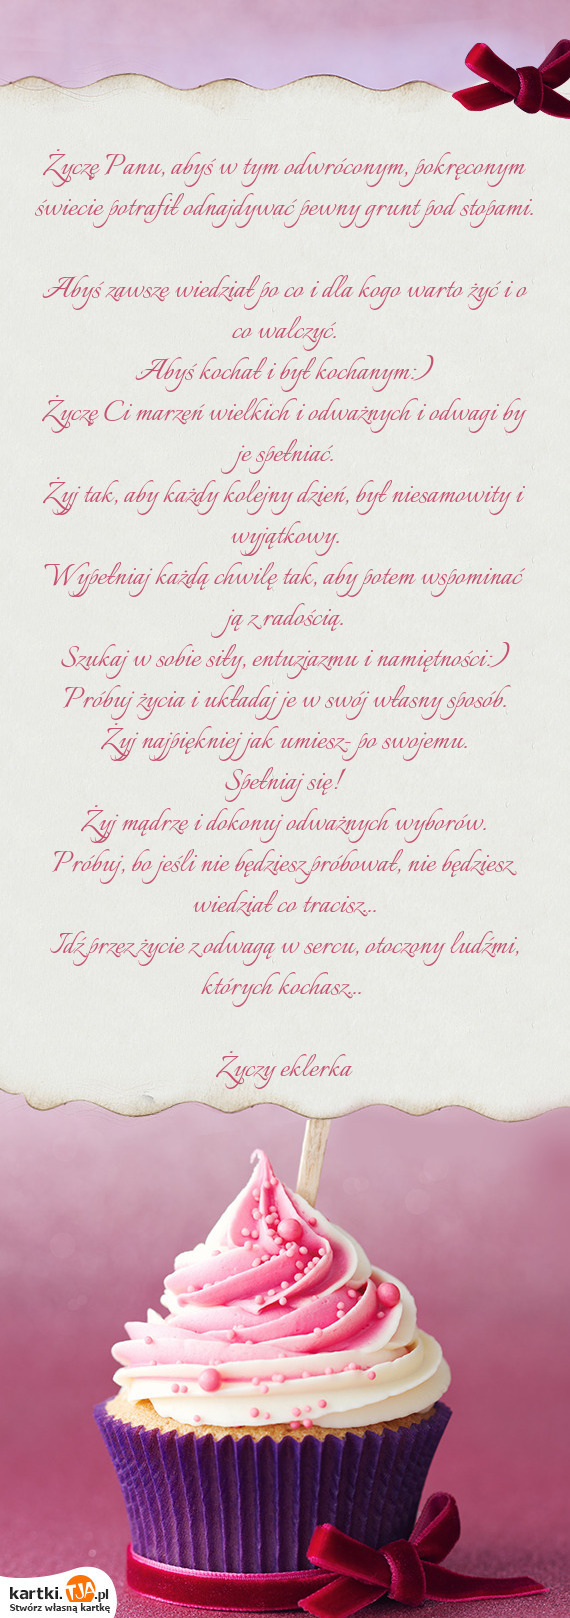 Życzę Panu, abyś w tym odwróconym, pokręconym
świecie potrafił odnajdywać pewny grunt pod stopami.
Abyś zawsze wiedział po co i dla kogo warto żyć i o
co walczyć.
Abyś kochał i był kochanym:)
Życzę Ci marzeń wielkich i odważnych i odwagi by
je spełniać.
Żyj tak, aby każdy kolejny dzień, był niesamowity i
wyjątkowy.
Wypełniaj każdą chwilę tak, aby potem wspominać
ją z radością.
Szukaj w sobie siły, entuzjazmu i namiętności:)
Próbuj życia i układaj je w swój własny sposób.
Żyj najpiękniej jak umiesz- po swojemu.
Spełniaj się!
Żyj mądrze i dokonuj odważnych wyborów.
Próbuj, bo jeśli nie będziesz próbował, nie będziesz
wiedział co tracisz...
Idź przez życie z odwagą w sercu, otoczony ludźmi,
których kochasz...
Życzy eklerka
kartki.TJA.pl
Stwórz własną kartkę